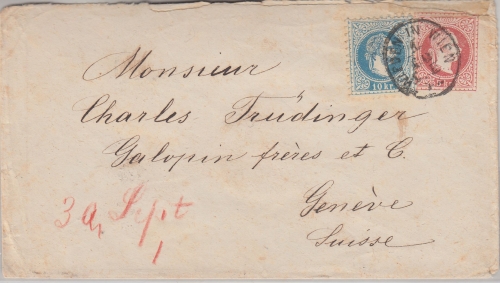 10 kr
WIEDEN IN WIEN
Monsieur
Charles Trüdinger
Galopin frères et C.
Genève
Suisse
Sept